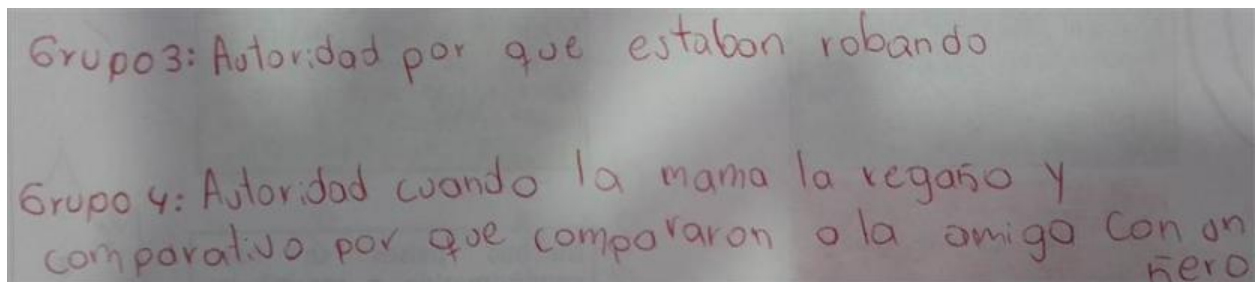 Grupo3: Autoridad por que estaban robando
Grupo 4: Autoridad cuando la mama la regaño y
comparativo por que compararon a la amiga con un
ñero